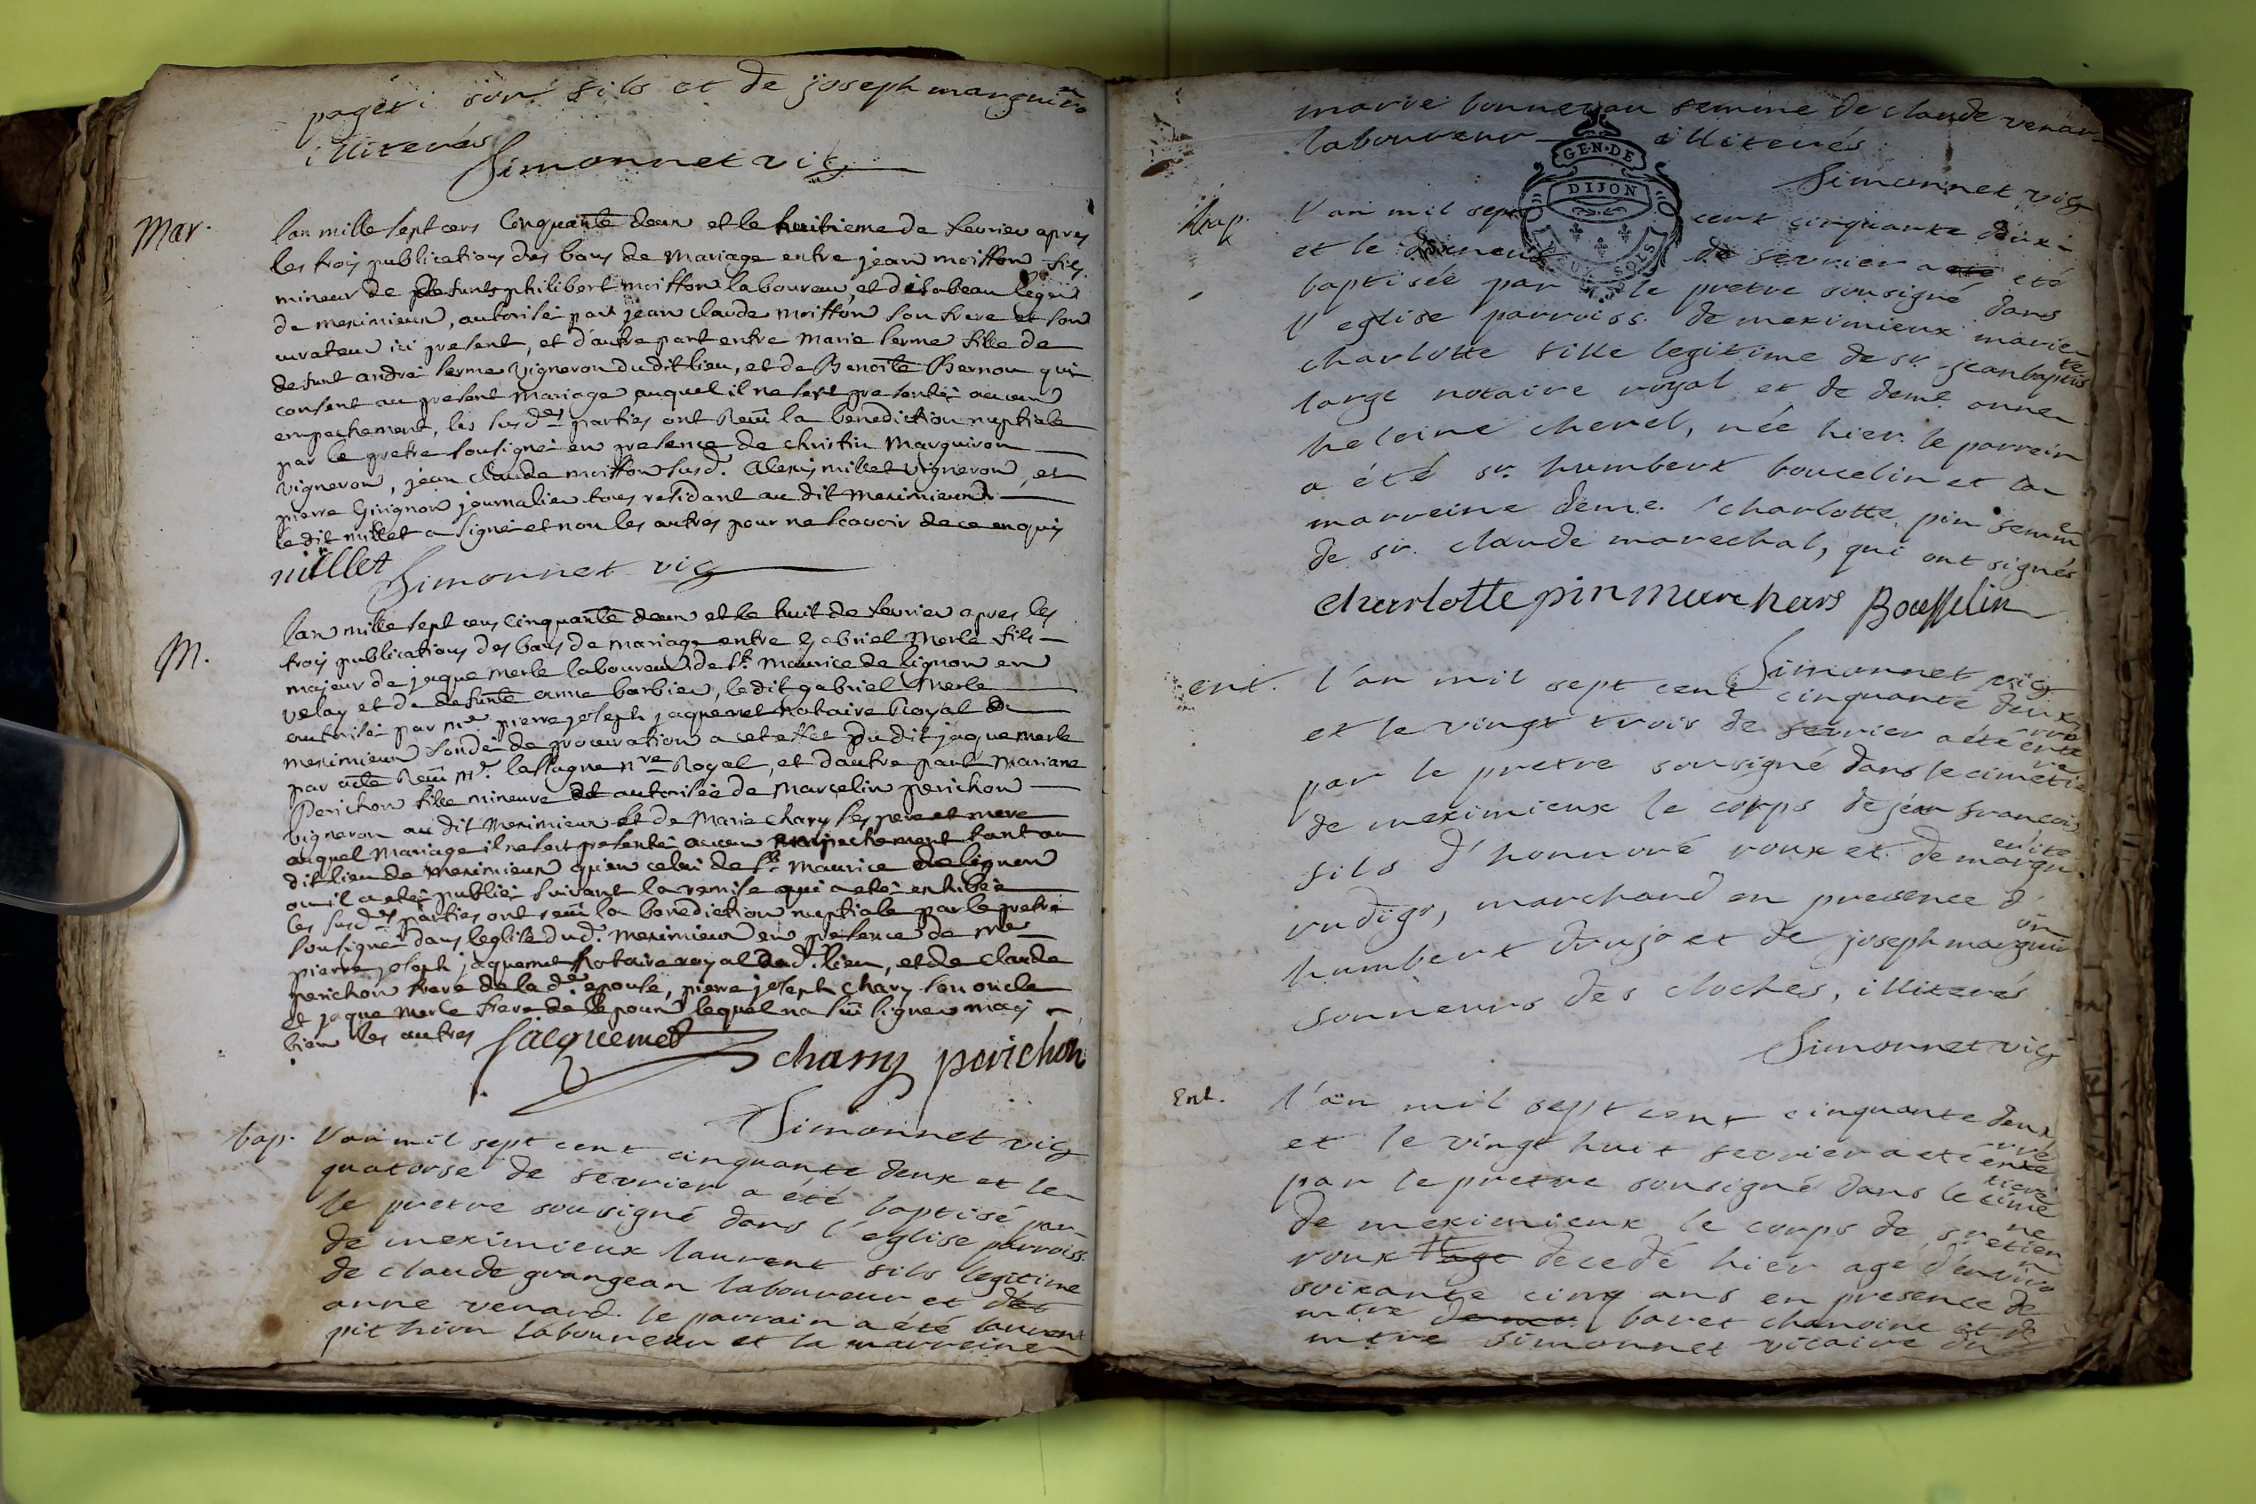 paget: son fils et de joseph marguiron
illiterés
Simonnet vic
Mar.
lan mille sept cens Cinquante deux et le huitieme de fevrier apres
les trois publications des bans de Mariage entre jean moisson fils
mineur de defunt philibert moisson laboureur, et disabeau
de meximieux, autorisé par jean claude moisson son frere et son
curateur ici present, et d'autre part entre Marie serme fille de
defunt andré serme vigneron dudit lieu, et de Benoite Bernon qui
consent au present Mariage auquel il ne sest presenté aucun
empechement, les susdes parties ont receu la benediction nuptiale
par le pretre sousigné en presence de christin Marguiron
vigneron, jean claude moisson susd. alexis millet vigneron, et
pierre Girignon journalier tous residant au dit meximieux
le dit millet a signé et non les autres pour ne scavoir de ce enquis
millet Simonnet vic
M.
lan mille sept cens cinquante deux et le huit de fevrier apres les
trois publications des bans de mariage entre gabriel Merle fils
majeur de jaque merle laboureur de st. Maurice de lignon en
velay et de defunte anne barbier, le dit gabriel Merle
autorisé par me pierre joseph jaquemet notaire Royal de
meximieux fondé de procuration a cet effet du dit jaque merle
par acte receu Me. lassagne nre Royal, et dautre part Mariane
Perichon fille mineure et autorisée de Marcelin perichon
vigneron au dit Meximieux et de Marie chary ses pere et mere
auquel Mariage il ne sest presenté aucun empechement tant au
dit lieu de Meximieux quen celui de st. Maurice de lignon
ou il a eté publié suivant la remise qui a eté exhibée
les susdes parties ont receu la benediction nuptiale par le pretre
sousigné dans leglise dud. meximieux en presence de me
pierre joseph jaquemet notaire royal dud. lieu, et de claude
perichon frere de la de epouse, pierre joseph chary son oncle
et jaque Merle frere de lepoux lequel na sceu signer mais
bien les autres Jacquemet
chary perichon
Simonnet vic
bap.
l'an mil sept cent cinquante deux et le
quatorse de fevrier a été baptisé par
le pretre sousigné dans l'eglise parroiss.
de meximieux laurent fils legitime
de claude grangean laboureur et de
anne venard. le parrain a été laurent
pithion laboureur et la marreine
marie bonnevau femme de claude venar
laboureur illiterés
Simonnet vic
GEN·DE
DIJON
SOLS
bap.
l'an mil sept cent cinquante deux
et le de fevrier a eté
baptisée par le pretre sousigné dans
l'eglise parroiss. de meximieux marie
charlotte fille legitime de sr. jean baptiste
large notaire royal et de demlle anne
heleine cherel, née hier. le parrein
a été sr. humbert boucelin et la
marreine deme. charlotte pin femme
de sr. claude marechal, qui ont signés
charlotte pin Bousselin
Simonnet vic
ent.
l'an mil sept cent cinquante deux
et le vingt trois de fevrier a été enterré
par le pretre sousigné dans le cimetiere
de meximieux le corps de jean françois
fils d'honnoré roux et de marguerite
rudigo, marchand en presence d'
humbert drujo et de joseph marguiron
sonneurs des cloches, illiterés
Simonnet vic
Ent.
l'an mil sept cent cinquante deux
et le vingt huit fevrier a eté enterré
par le pretre sousigné dans le cimetiere
de meximieux le corps de sr etienne
roux decedé hier agé d'environ
soixante cinq ans en presence de
mtre bavet chanoine et de
mtre simonnet vicaire du